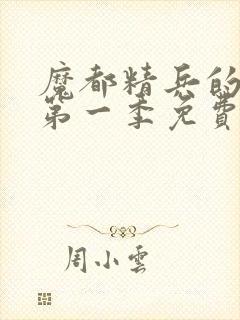 魔都精兵的
第一季免費
周小雲